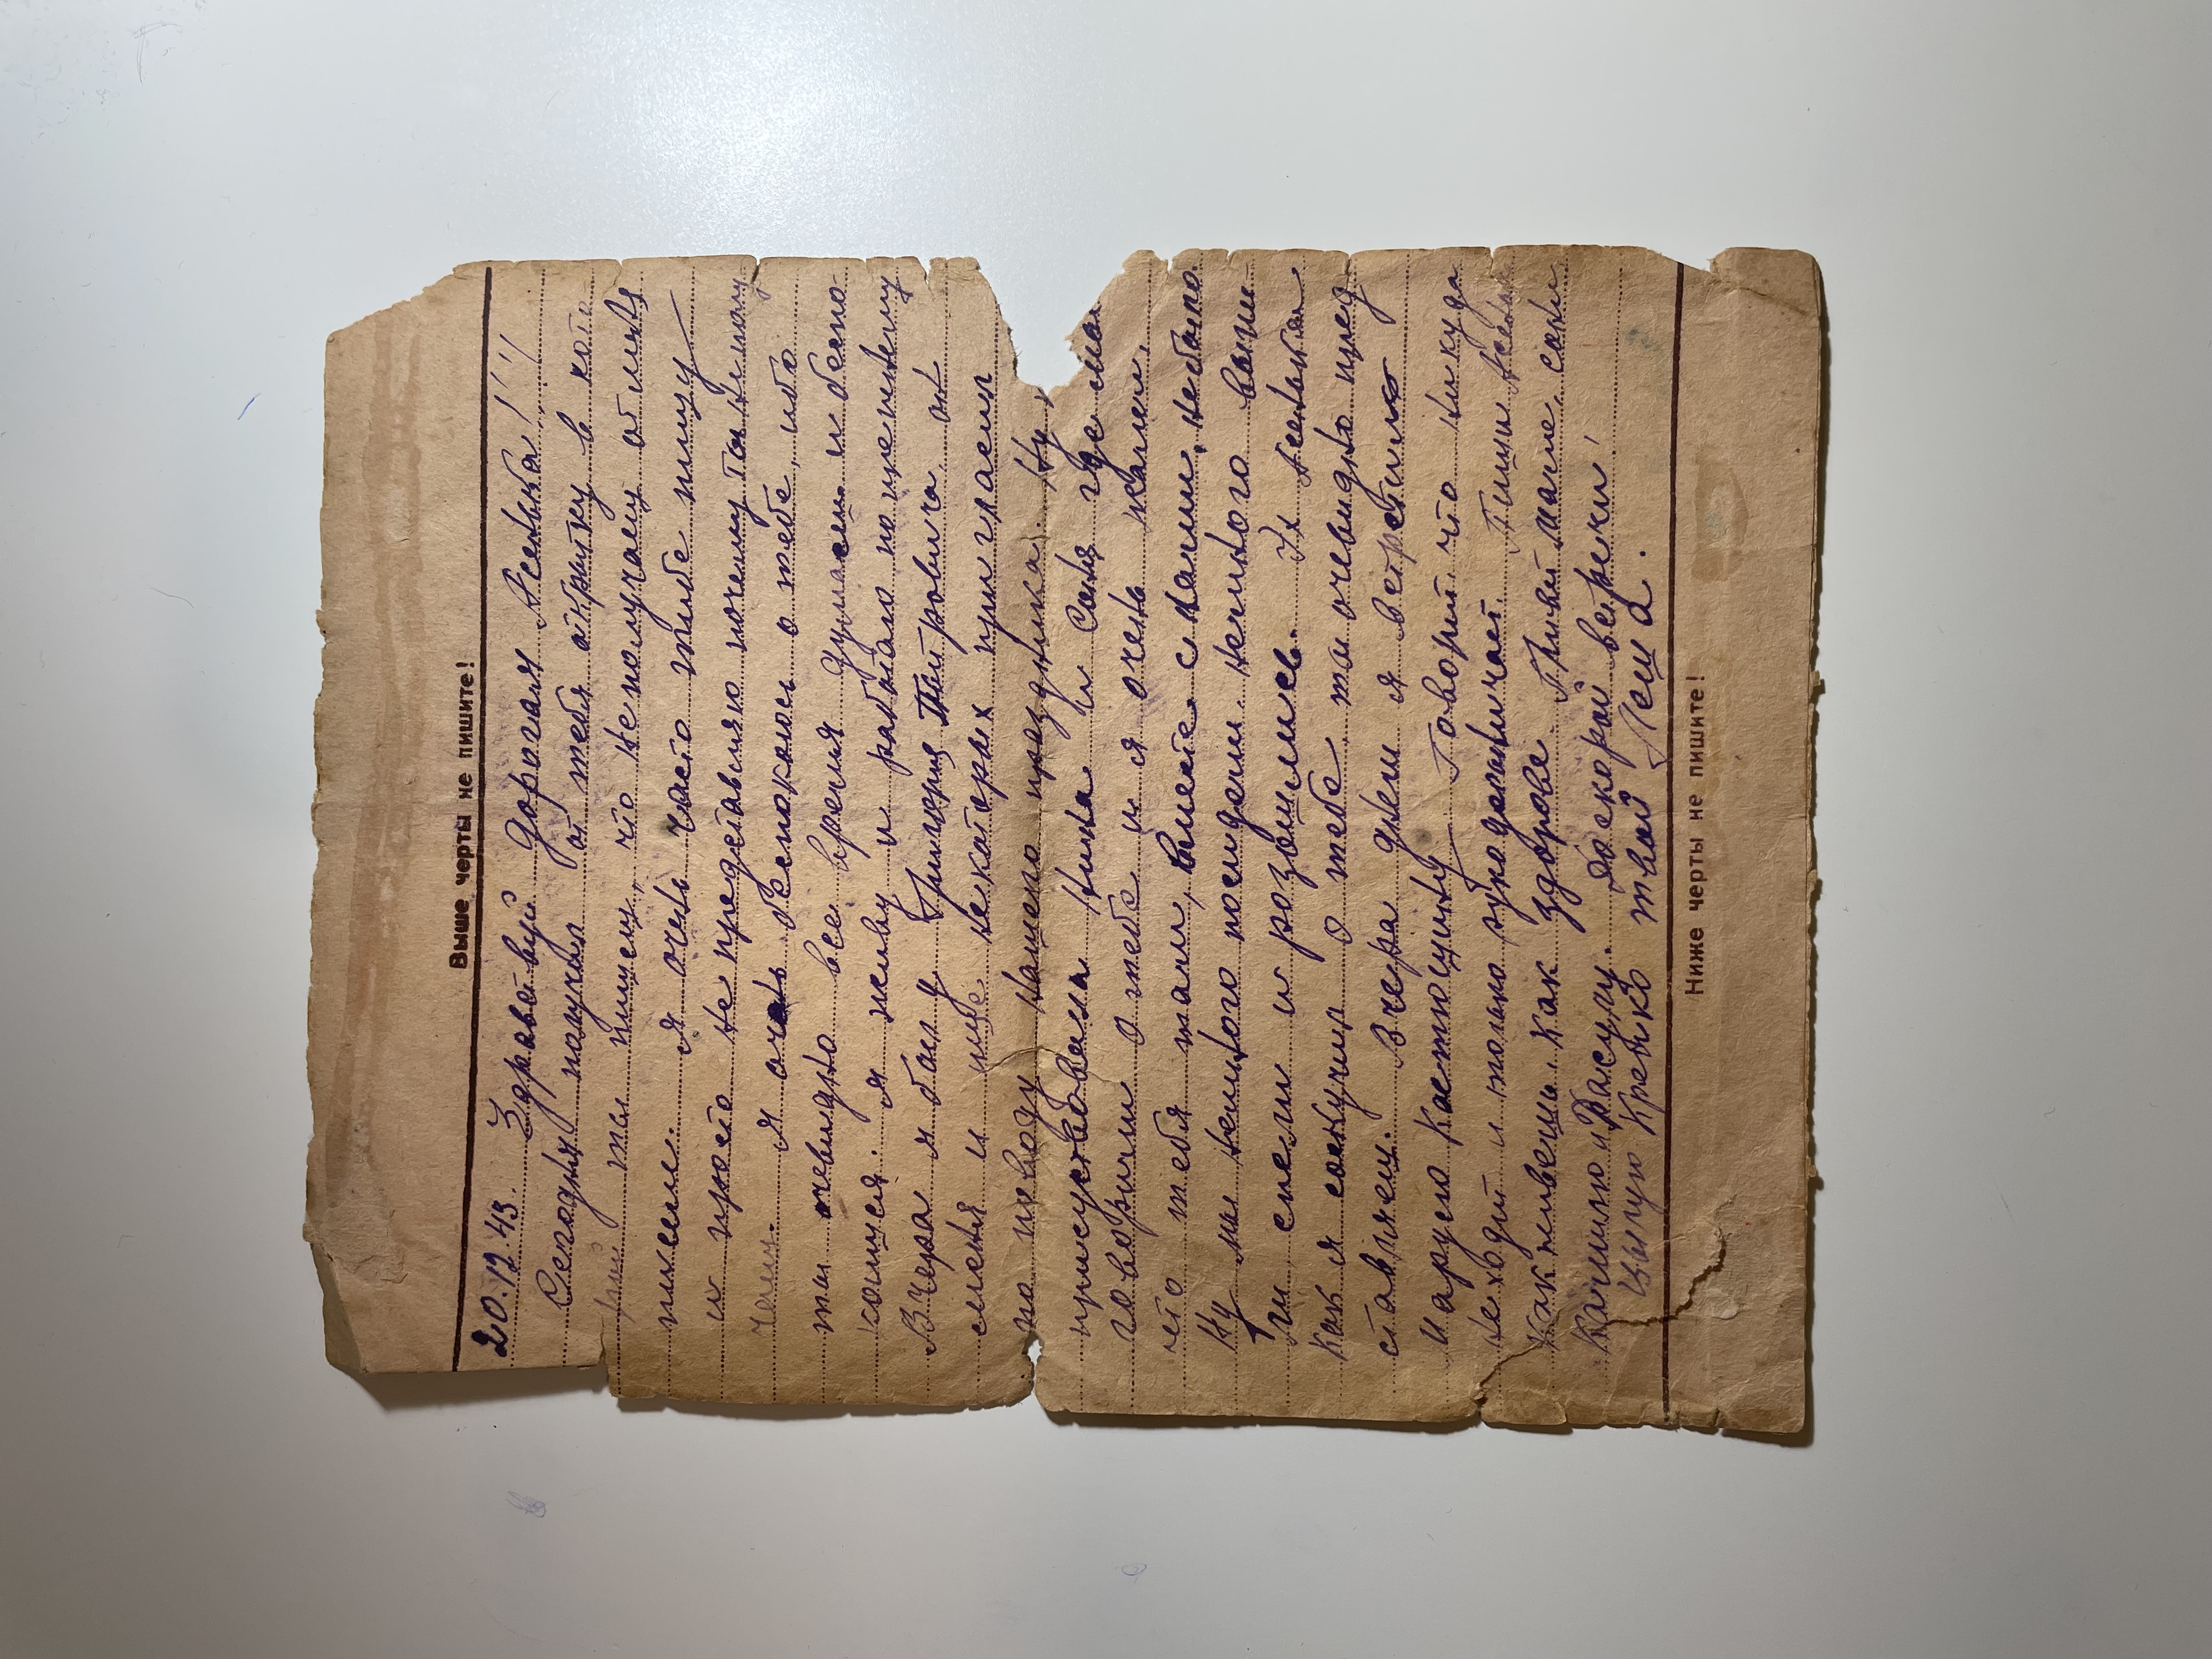 Выше черты не пишите!
20.12.43. Здравствуй дорогая Асенька!!!
Сегодня получил от тебя открытку в кото-
рой ты пишеш, что не получаеш от меня
писем. Я очень часто тибе пишу
и просто не представляю почему так получ
Я очень беспокоюсь о тебе, ибо
ты очевидно все время думаеш и беспо-
коишся. Я живу и работаю по прежнему
Вчера я был у Григория Петровича, он
меня и еще некоторых пригласил
по поводу нашего праздника. Ну,
присуствовали Нина и Соня где мы
говорили о тебе и я очень жалел,
что тебя там, вместе с нами, небыло.
Ну мы немного посидели немного выпи
ли спели и розошлись. Эх Асенька
как я соскучил о тебе, ты очевидно пред
ставляеш. Вчера днем я встретил
Марусю Костюшину Говорит что никуда
не ходит и только рукодельничает. Пиши Асенька
как живеш. Как здоровье. Привет маме, Соне
Камилю и Расулу. До скорой встречи!
Цылую крепко твой Леша.
Ниже черты не пишите!